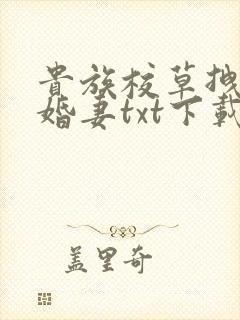 貴族校草拽
婚妻txt下載
蓋里奇